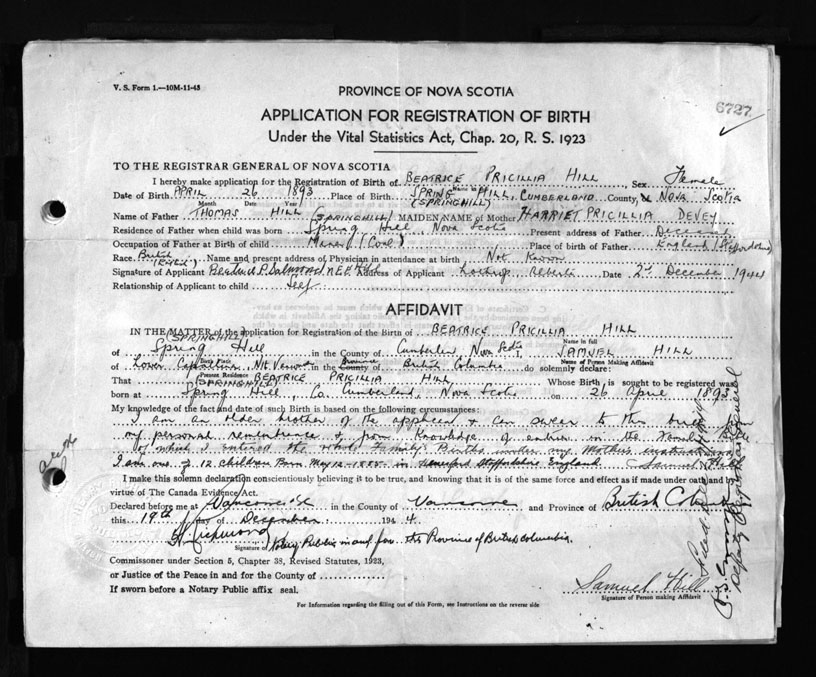 V. S. Form 1.—10M-11-43
PROVINCE OF NOVA SCOTIA
6727
APPLICATION FOR REGISTRATION OF BIRTH
Under the Vital Statistics Act, Chap. 20, R. S. 1923
TO THE REGISTRAR GENERAL OF NOVA SCOTIA
I hereby make application for the Registration of Birth of BEATRICE PRICILLIA HILL Sex Female
Name in full
Date of Birth APRIL 26 1893 Place of Birth SPRING HILL, CUMBERLAND County, NOVA SCOTIA
Month Date Year (SPRINGHILL)
Name of Father THOMAS HILL MAIDEN NAME of Mother HARRIET PRICILLIA DEVEY
(SPRINGHILL)
Residence of Father when child was born Spring Hill, Nova Scotia Present address of Father Deceased
Occupation of Father at Birth of child Miner (Coal) Place of birth of Father England (Staffordshire)
Race British (English) Name and present address of Physician in attendance at birth Not Known
Signature of Applicant Beatrice P. Salmond NEE Hill Address of Applicant Lothrop Alberta Date 2nd December 1944
Relationship of Applicant to child Self
AFFIDAVIT
IN THE MATTER of the application for Registration of the Birth of BEATRICE PRICILLIA HILL
(SPRINGHILL) Name in full
of Spring Hill in the County of Cumberland, Nova Scotia I, SAMUEL HILL
Birth Place Name of Person Making Affidavit
of Lower Capilano, Nth Vancouver in the County of British Columbia do solemnly declare:
Present Residence Province
That BEATRICE PRICILLIA HILL Whose Birth is sought to be registered was
(SPRINGHILL)
born at Spring Hill, Co. Cumberland, Nova Scotia on 26 April 1893
My knowledge of the fact and date of such Birth is based on the following circumstances:
I am an older brother of the applicant & can swear to this birth from
my personal remembrance & from knowledge of entries in the Family Bible
of which I entered the whole Family's Births under my Mother's instructions
I am one of 12 children Born May 12-1885 in Staffordshire England Samuel Hill
I make this solemn declaration conscientiously believing it to be true, and knowing that it is of the same force and effect as if made under oath and by
virtue of The Canada Evidence Act.
Declared before me at Vancouver in the County of Vancouver and Province of British Columbia
this 19th day of December 1944.
Richmond
Signature of Notary Public in and for the Province of British Columbia
Commissioner under Section 5, Chapter 38, Revised Statutes, 1923,
or Justice of the Peace in and for the County of
If sworn before a Notary Public affix seal.
Samuel Hill
Signature of Person making Affidavit
For Information regarding the filling out of this Form, see Instructions on the reverse side
Filed
Deputy Registrar General